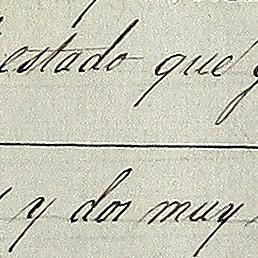 estado que
y dos muy